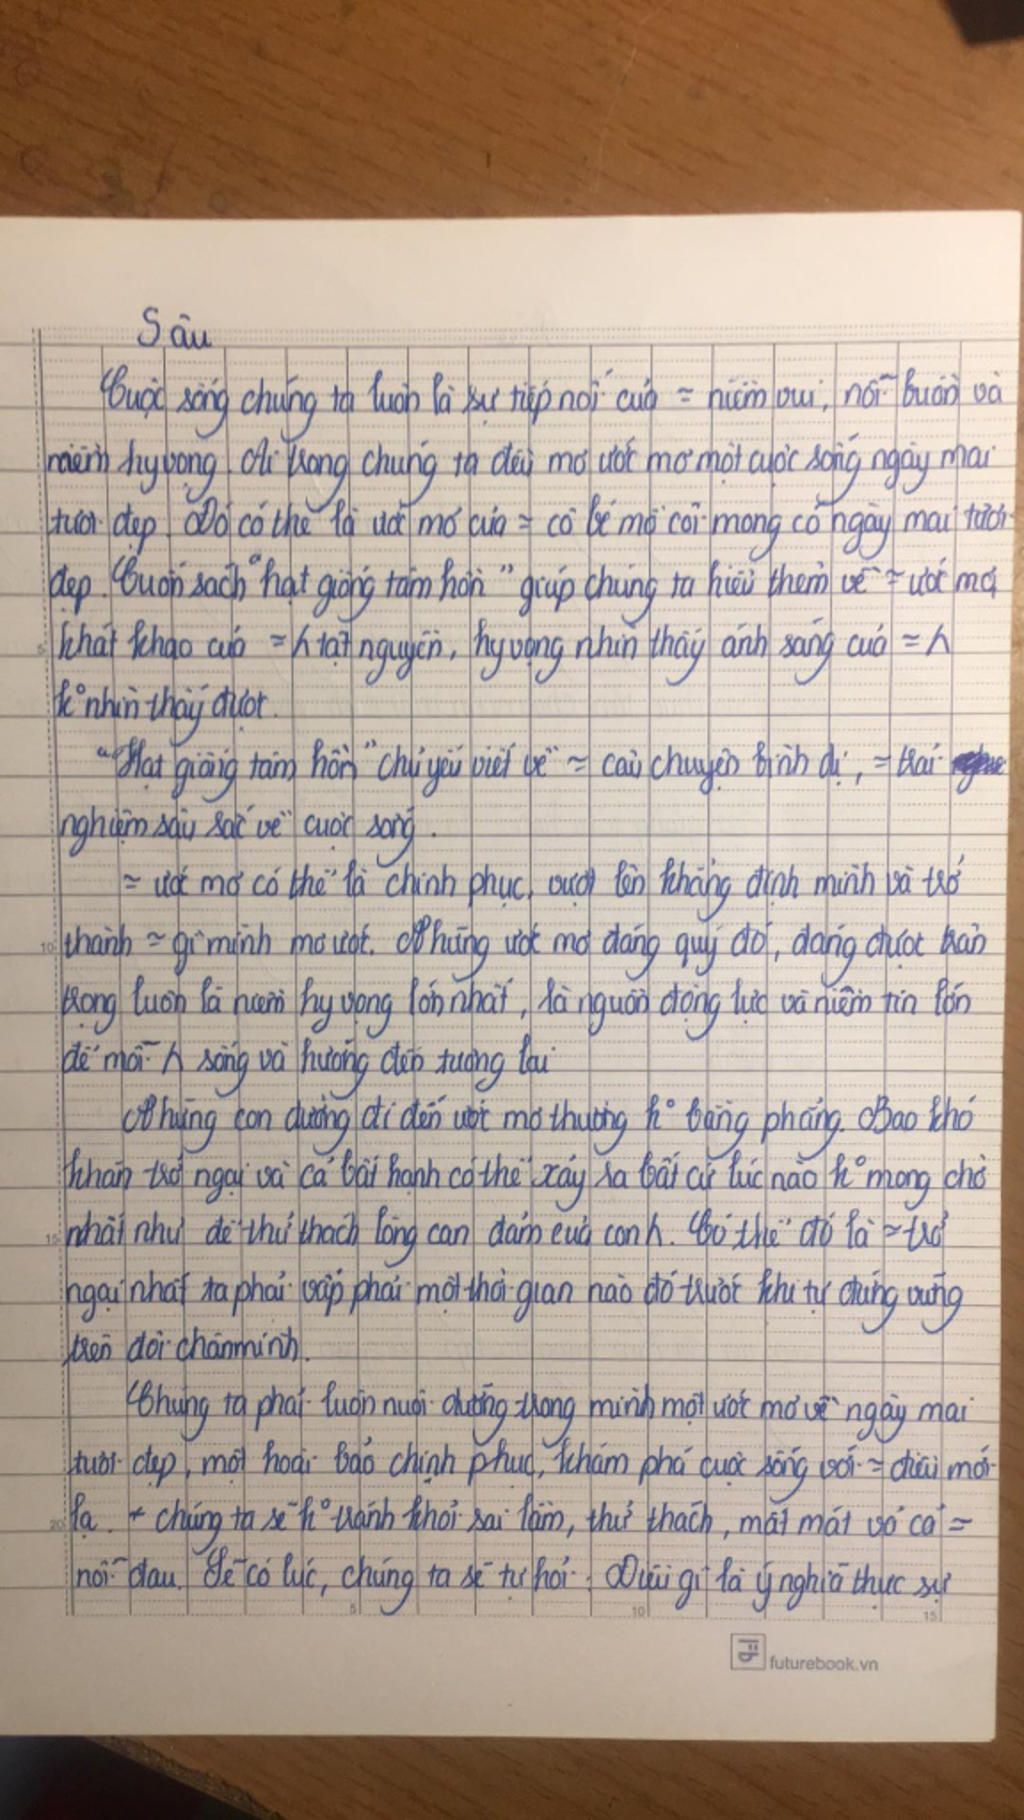 Sâu
Cuộc sống chúng ta luôn là sự tiếp nối của = niềm vui, nỗi buồn và
niềm hy vọng. Ai trong chúng ta đều mơ ước mơ một cuộc sống ngày mai
tươi đẹp. Đó có thể là ước mơ của = cô bé mồ côi mong có ngày mai tươi
đẹp. Cuốn sách "hạt giống tâm hồn" giúp chúng ta hiểu thêm về = ước mơ,
khát khao của = h tật nguyền, hy vọng nhìn thấy ánh sáng của = h
k° nhìn thấy được.
"Hạt giống tâm hồn" chủ yếu viết về = câu chuyện bình dị, = trải
nghiệm sâu sắc về cuộc sống.
= ước mơ có thể là chinh phục, vượt lên khẳng định mình và trở
thành = gì mình mơ ước. Những ước mơ đáng quý đó, đáng được trân
trọng luôn là niềm hy vọng lớn nhất, là nguồn động lực và niềm tin lớn
để mỗi h sống và hướng đến tương lai
Những con đường đi đến ước mơ thường k° bằng phẳng. Bao khó
khăn trở ngại và cả bất hạnh có thể xảy ra bất cứ lúc nào k° mong chờ
nhất như để thử thách lòng can đảm của con h. Có thể đó là = trở
ngại nhất ta phải vấp phải một thời gian nào đó trước khi tự đứng vững
trên đôi chân mình.
Chúng ta phải luôn nuôi dưỡng trong mình một ước mơ về ngày mai
tươi đẹp, một hoài bảo chinh phục, khám phá cuộc sống với = điều mới
lạ. + chúng ta sẽ k° tránh khỏi sai lầm, thử thách, mất mát và cả =
nỗi đau. Sẽ có lúc, chúng ta sẽ tự hỏi: Điều gì là ý nghĩa thực sự
futurebook.vn